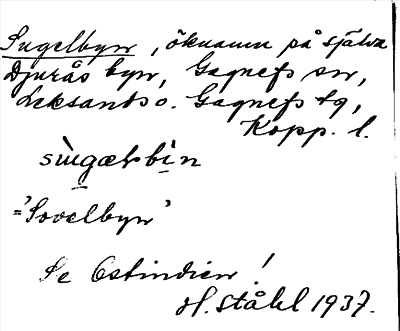 Sugelbyn, öknamn på själva
Djurås byn, Gagnefs sn,
Leksands o. Gagnefs tg,
Kopp. l.
sùgærbìn
='Sovelbyn'
Se Ostindien!
H. Ståhl 1937.